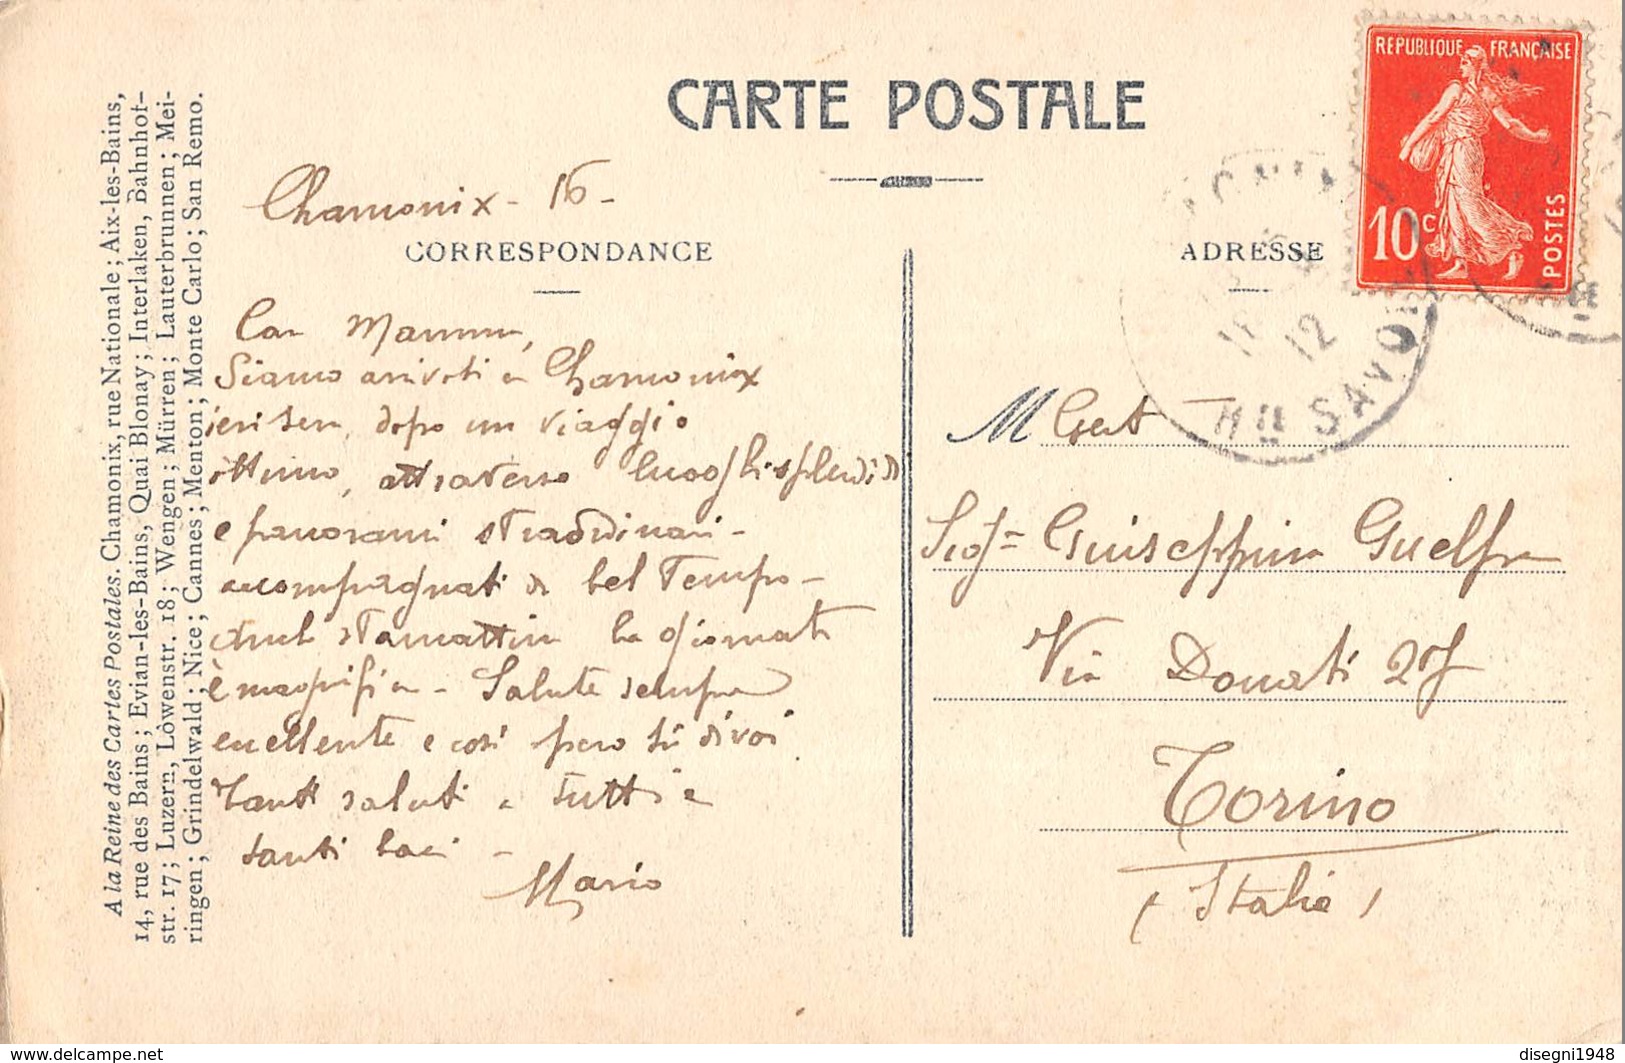 CARTE POSTALE
REPUBLIQUE FRANÇAISE
10c
POSTES
CORRESPONDANCE
ADRESSE
12
Hte SAVOIE
A la Reine des Cartes Postales. Chamonix, rue Nationale; Aix-les-Bains,
14, rue des Bains; Evian-les-Bains, Quai Blonay; Interlaken, Bahnhof-
str. 17; Luzern, Löwenstr. 18; Wengen; Mürren; Lauterbrunnen; Mei-
ringen; Grindelwald; Nice; Cannes; Menton; Monte Carlo; San Remo.
Chamonix - 16 -
Cara Mamma,
Siamo arrivati a Chamonix
ieri sera, dopo un viaggio
ottimo, attraverso luoghi splendidi
e panorami straordinari -
accompagnati di bel tempo -
Anche stamattina la giornata
è magnifica - Salute sempre
eccellente e così spero sia di voi
Tanti saluti a tutti e
tanti baci -
Mario
M
Sigra Giuseppina Guelfa
Via Donati 27
Torino
(Italie)
delcampe.net
disegni1948